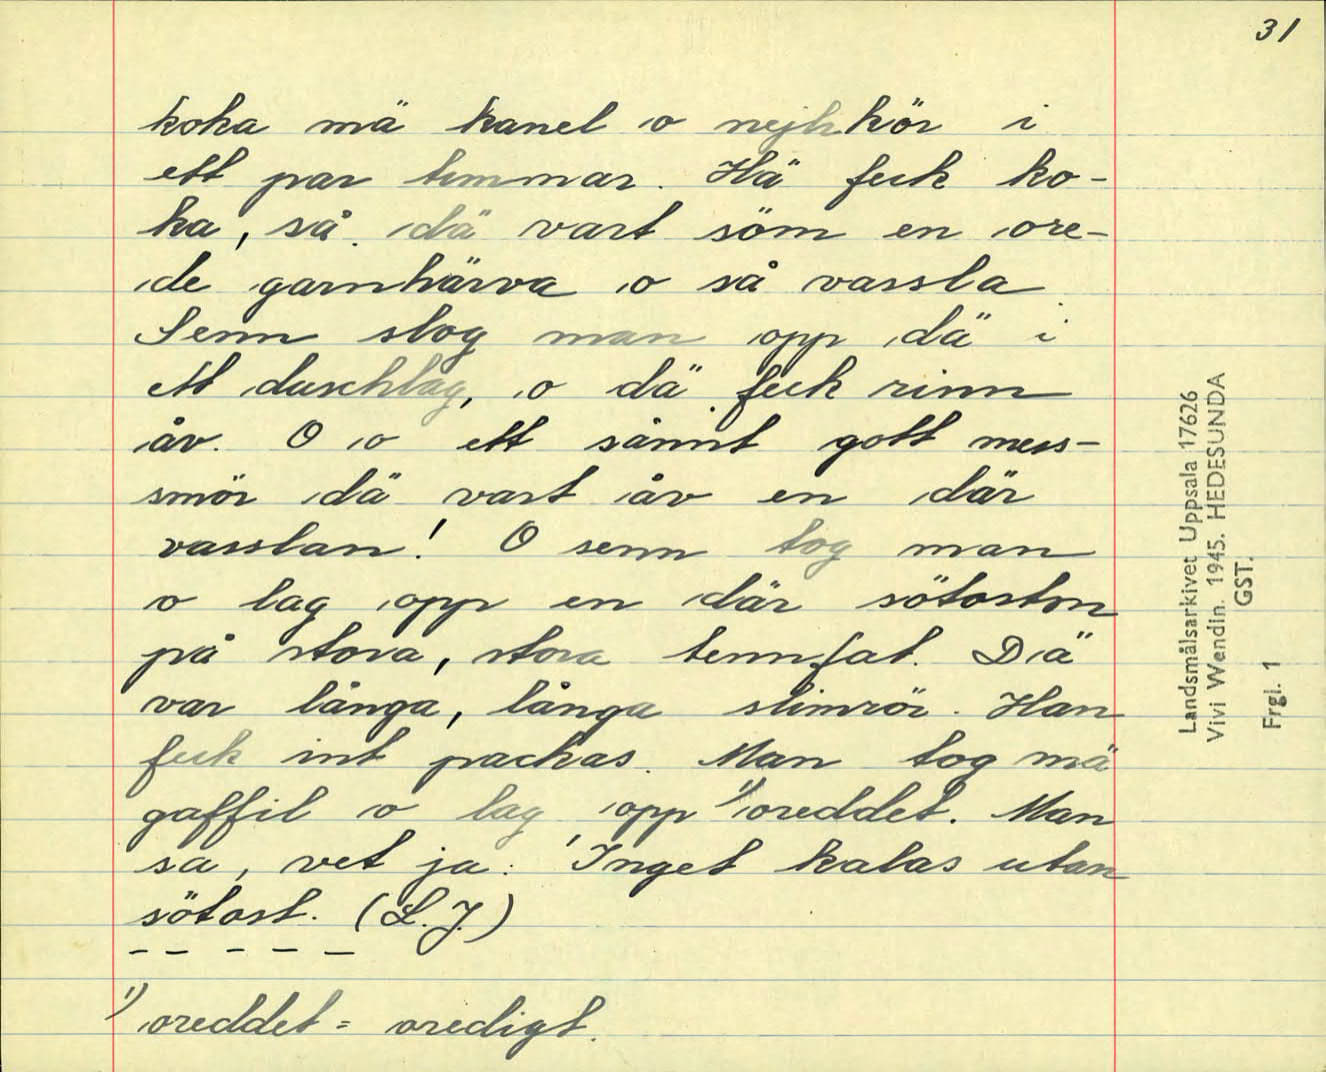 31
koka mä kanel o nejlikör i
ett par timmar. Hä feck ko-
ka, så dä vart söm en ore-
de garnhärva o så vassla
Senn slog man opp dä i
ett duschlag, o dä feck rinn
åv. O o ett sånnt gott mess-
smör dä vart åv en där
vasslan! O senn tog man
o lag opp en där sötostn
på stora, stora tennfat. Dä
var långa, långa slimrör. Han
feck int packas. Man tog mä
gaffil o lag opp 1) oreddet. Man
sa, vet ja: 'Inget kalas utan
sötost. (L.J.)
- - - - -
1) oreddet = oredigt.
Landsmålsarkivet Uppsala 17626
Vivi Wendin. 1945. HEDESUNDA
GST.
Frgl. 1